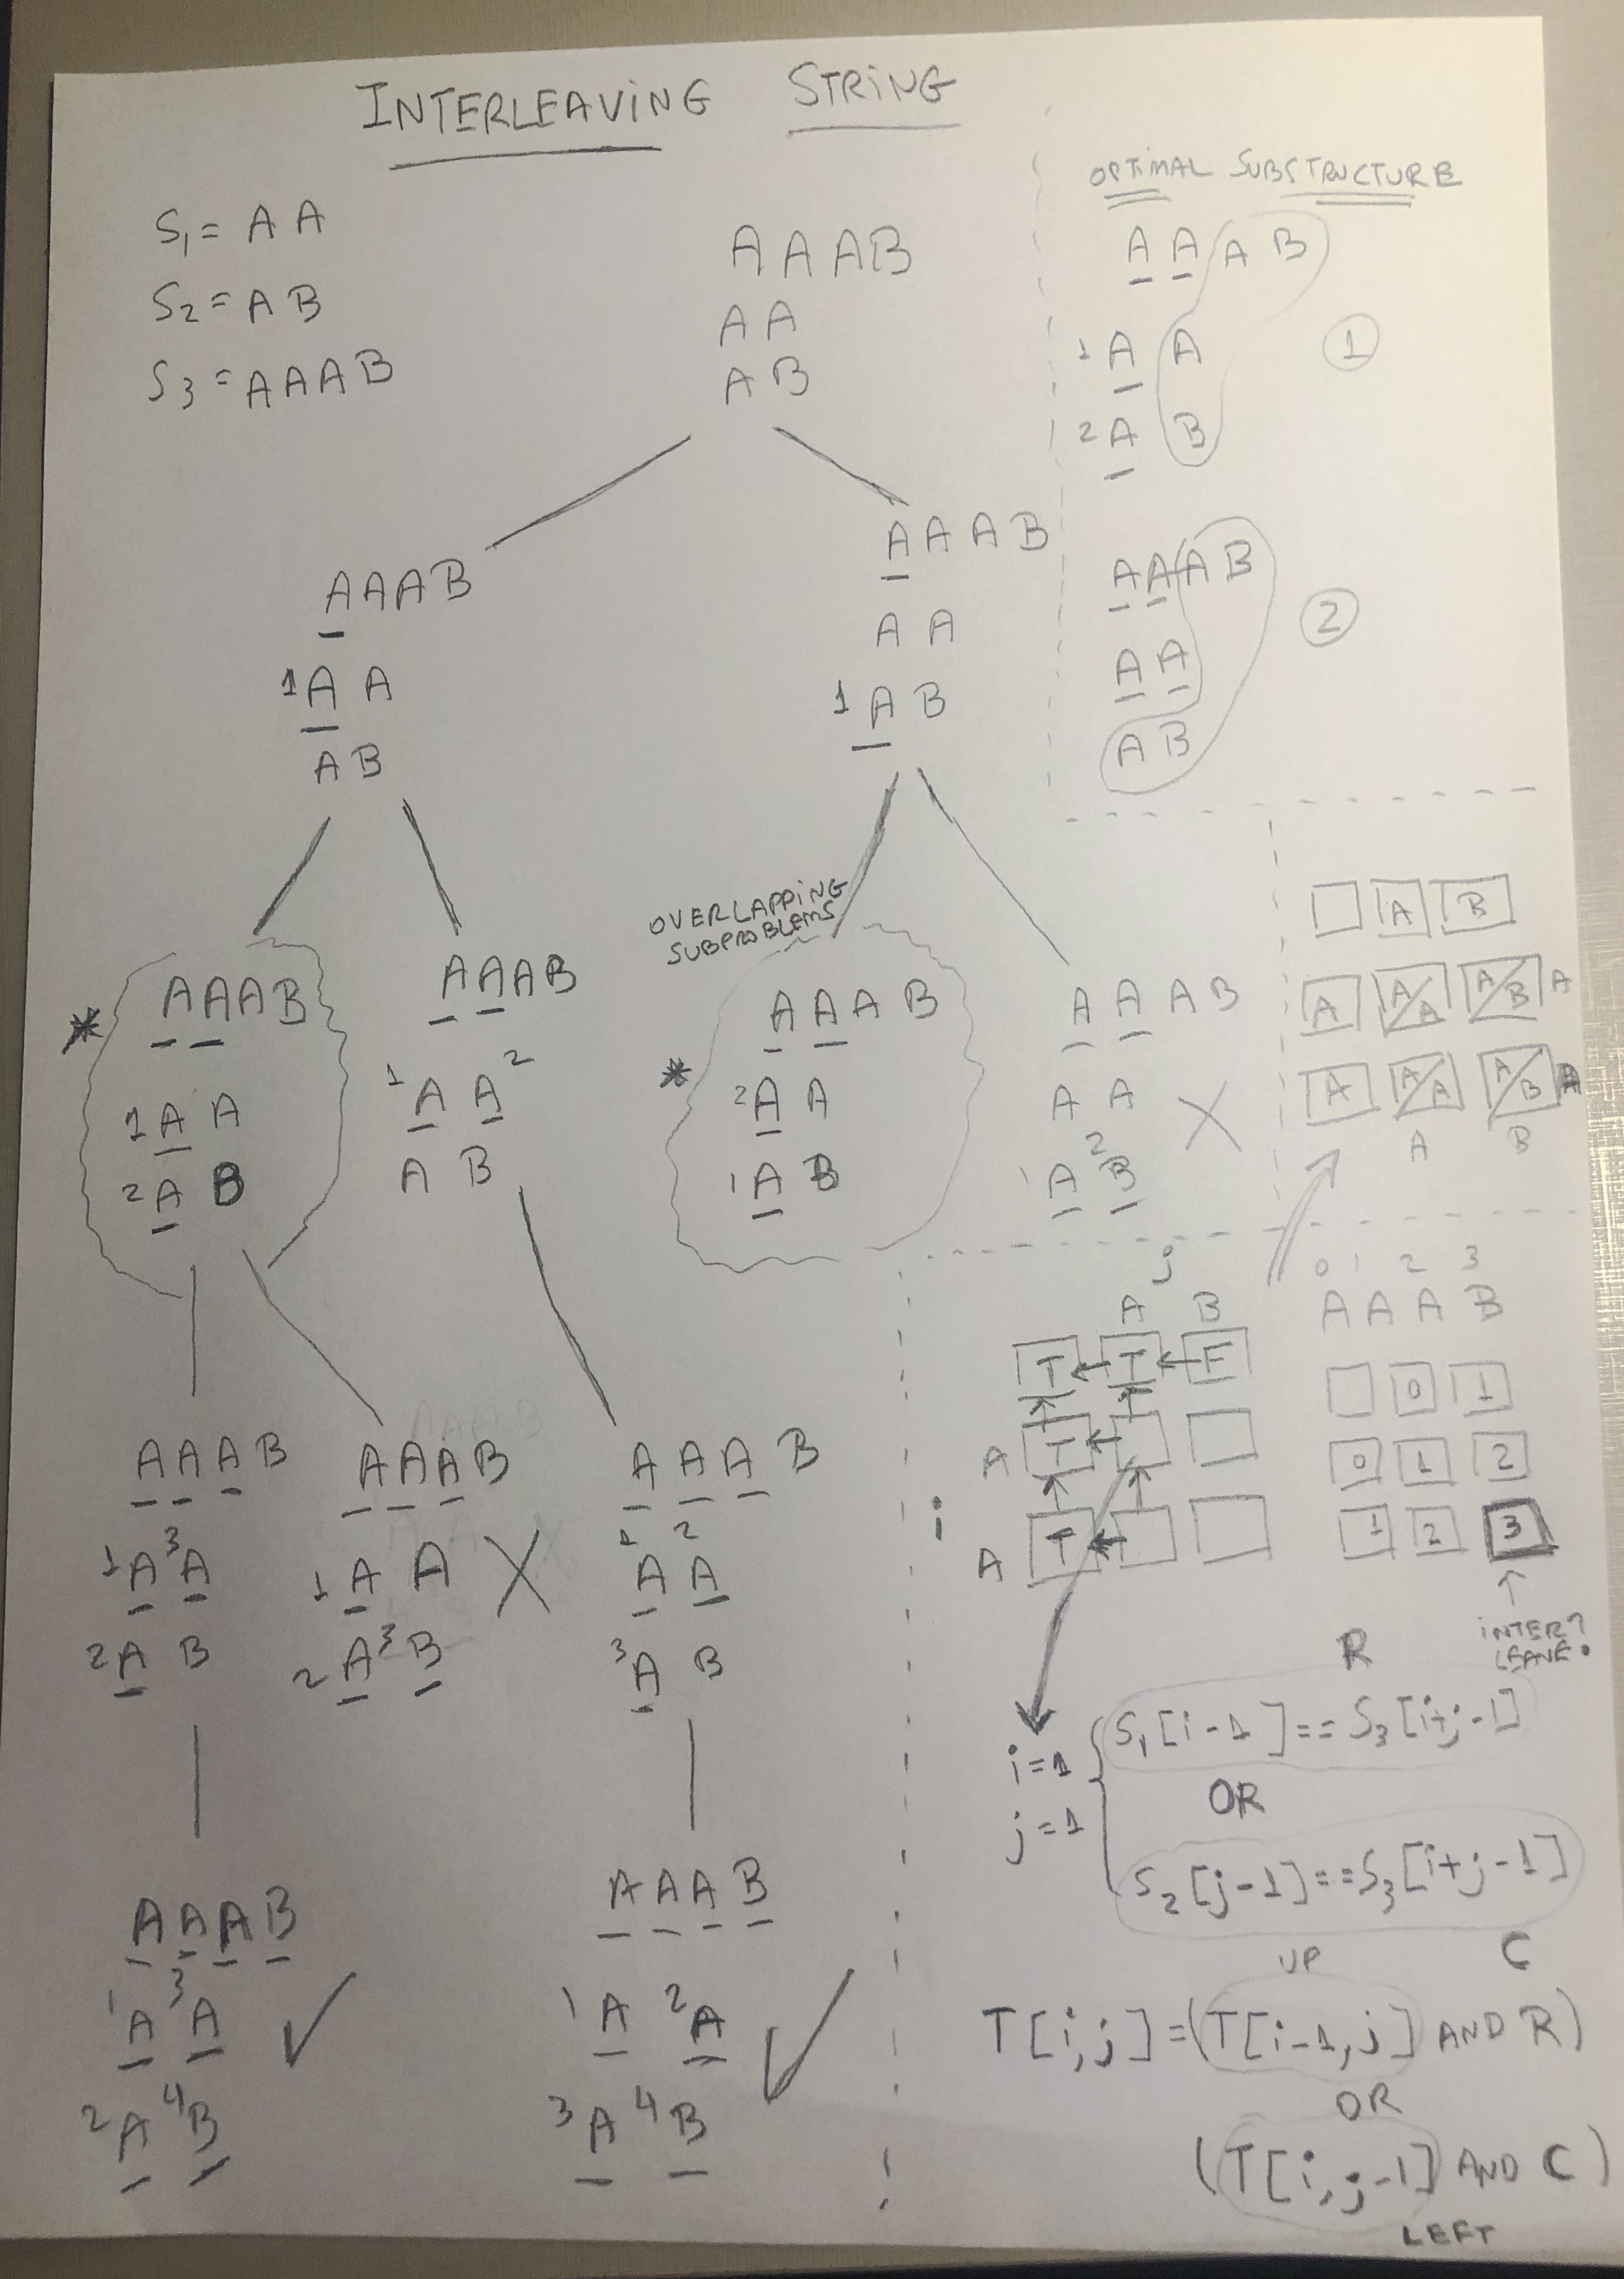 INTERLEAVING STRING
S1= A A
S2= A B
S3= AAAB
A A A B
A A
A B
A A A B
1A A
A B
A A A B
A A
1A B
OVERLAPPING
SUBPROBLEMS
* A A A B
1A A
2A B
A A A B
1A A2
A B
* A A A B
2A A
1A B
A A A B
A A X
1A 2B
A A A B
1A 3A
2A B
A A A B
1A A X
2A 3B
A A A B
1A 2A
3A B
A A A B
1A 3A ✓
2A 4B
A A A B
1A 2A ✓
3A 4B
OPTIMAL SUBSTRUCTURE
A A A B
1A A
2A B
1
A A A B
A A
A B
2
A B
A A/A A/B A
A A/A A/B A
A B
j
A B
T T F
A T
i
A T
0 1 2 3
A A A B
0 1
0 1 2
1 2 3
R
i=1
j=1
S1[i-1]==S3[i+j-1]
OR
S2[j-1]==S3[i+j-1]
C
UP
T[i,j]=(T[i-1,j] AND R)
OR
(T[i,j-1] AND C)
LEFT